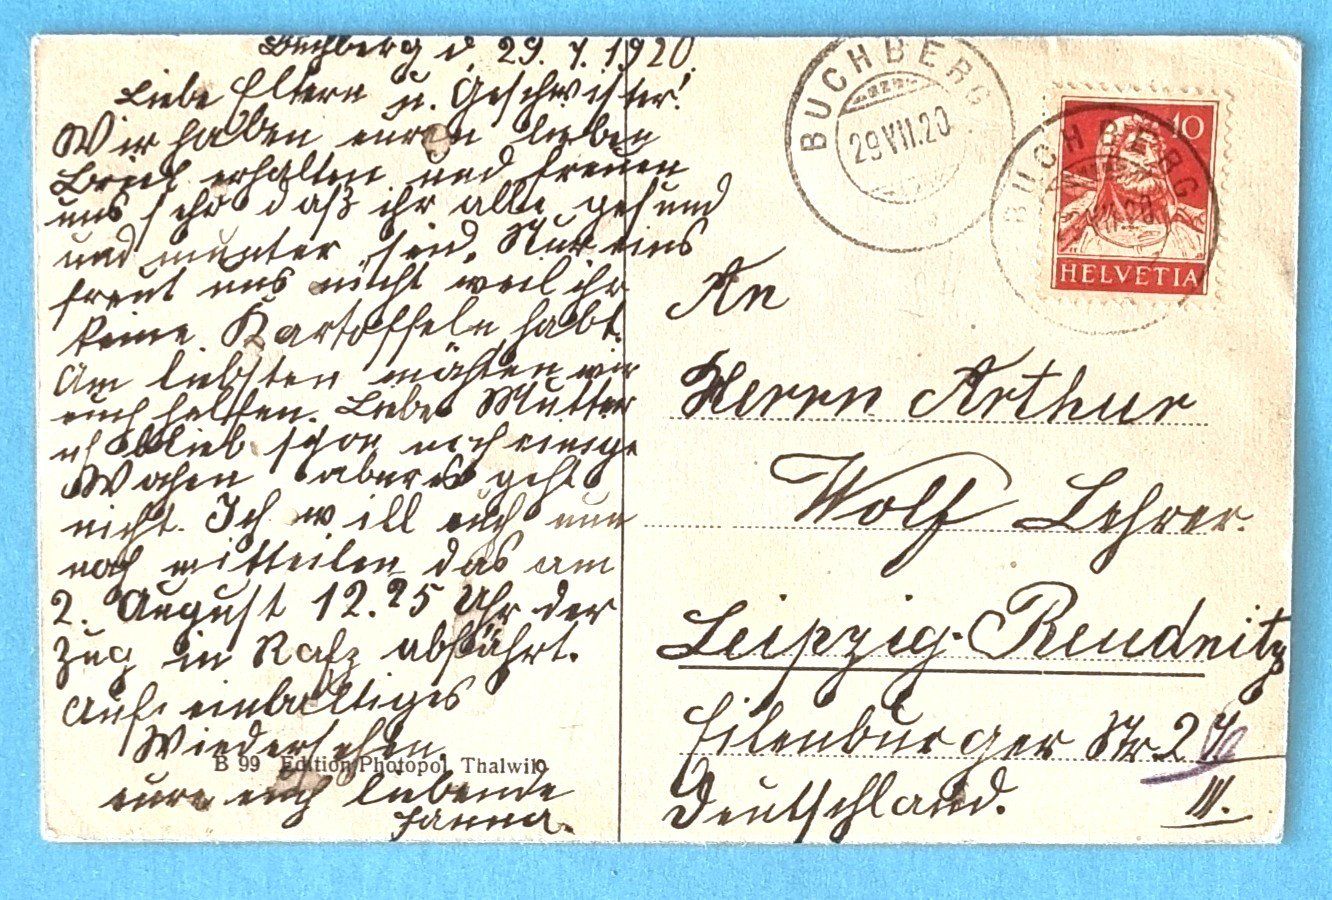 Buchberg d. 29. 7. 1920.
Liebe Eltern u. Geschwister!
Wir haben euren lieben
Brief erhalten und freuen
uns sehr daß ihr alle gesund
und munter seid. Nur eins
freut uns nicht weil ihr
keine Kartoffeln habt.
Am liebsten möchten wir
euch helfen. Liebe Mutter
ich blieb schon noch einige
Wochen aber es geht
nicht. Ich will euch nun
noch mitteilen das am
2. August 12.25 Uhr der
Zug in Rafz abfährt.
Auf einbaltiges
Wiedersehen
eure euch liebende
Hanna.
B 99 Edition Photopol Thalwil
BUCHBERG
29.VII.20
BUCHBERG
10
HELVETIA
An
Herrn Arthur
Wolf Lehrer.
Leipzig-Reudnitz
Eilenburger Str. 2
III.
Deutschland.